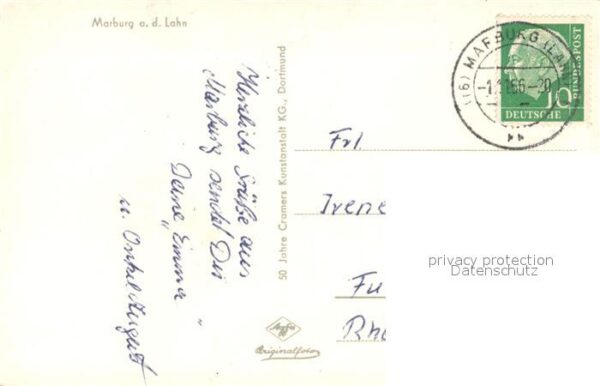 Marburg a. d. Lahn
Herzliche Grüße aus
Marburg sendet Dir
Deine Emma
u. Onkel August
50 Jahre Cramers Kunstanstalt KG., Dortmund
Agfa
Originalfoto
(16) MARBURG (LAHN)
-1.11.56.-20
kk
10
BUNDESPOST
DEUTSCHE
Frl.
Irene
Fu
Rh
privacy protection
Datenschutz